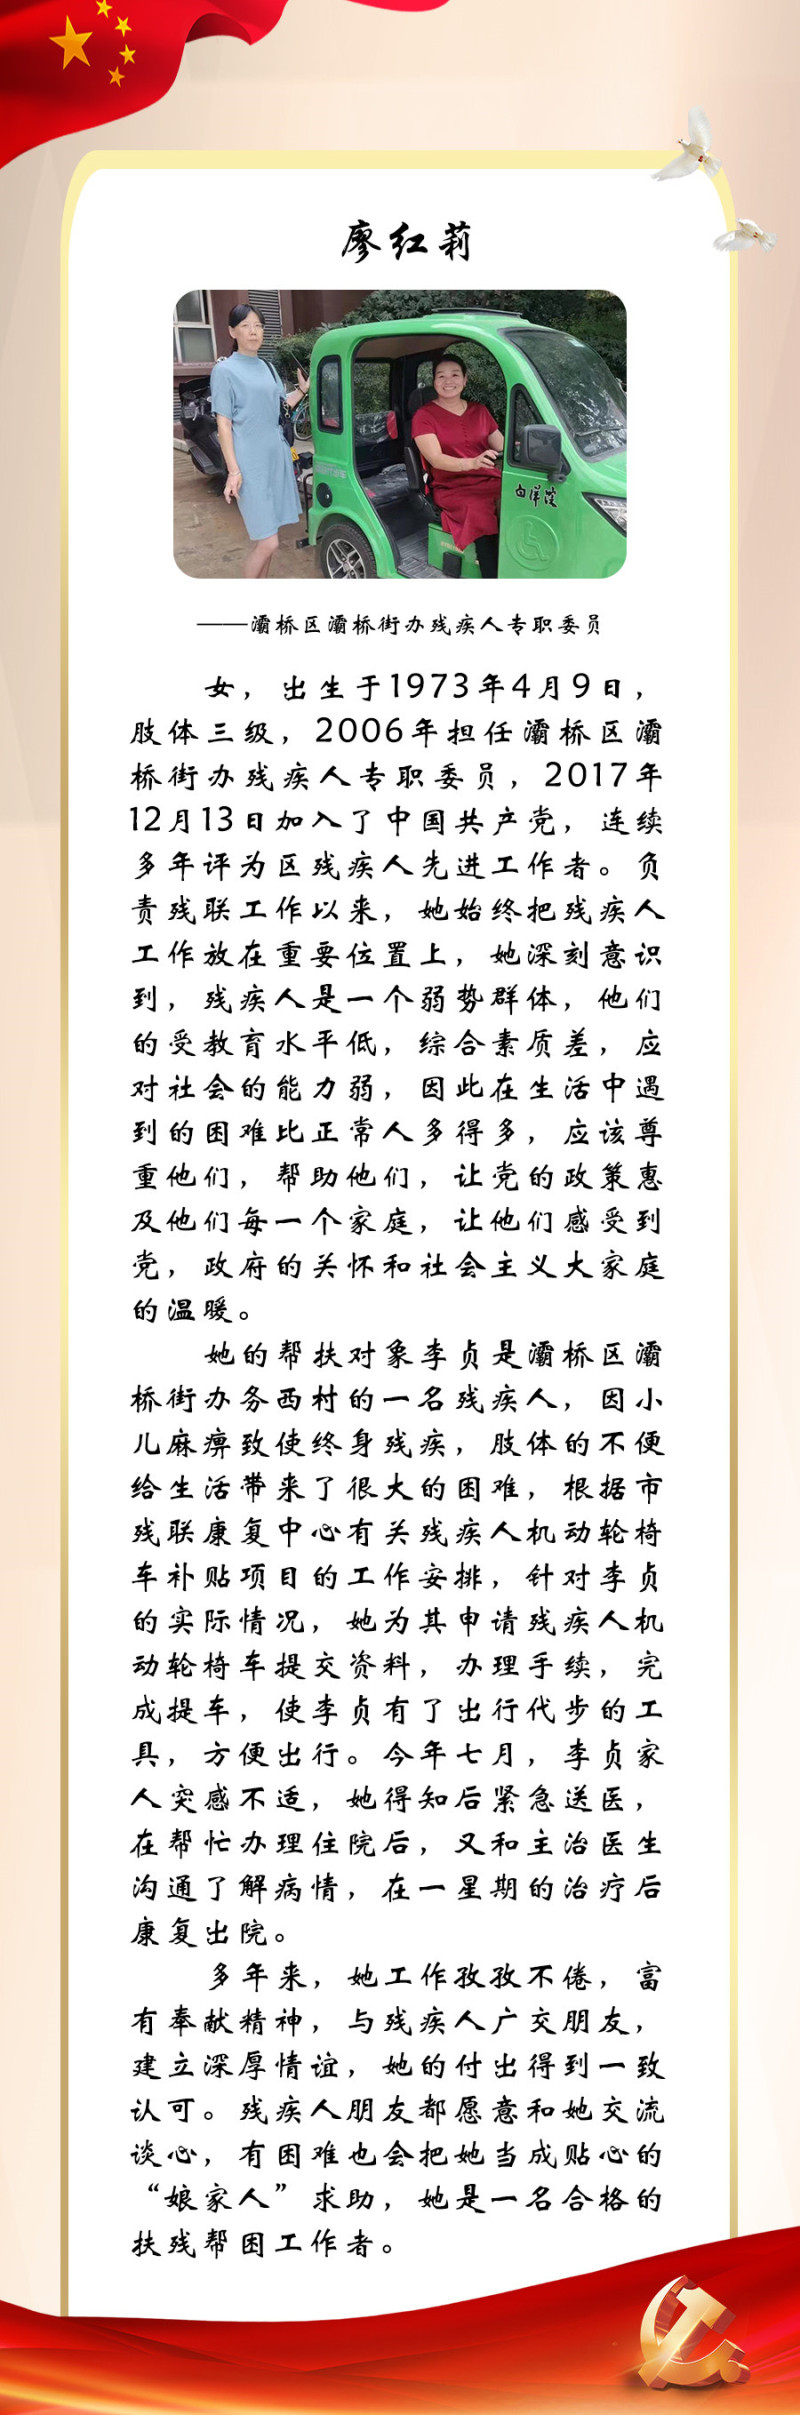 廖红莉
白洋淀
——灞桥区灞桥街办残疾人专职委员
女，出生于1973年4月9日，
肢体三级，2006年担任灞桥区灞
桥街办残疾人专职委员，2017年
12月13日加入了中国共产党，连续
多年评为区残疾人先进工作者。负
责残联工作以来，她始终把残疾人
工作放在重要位置上，她深刻意识
到，残疾人是一个弱势群体，他们
的受教育水平低，综合素质差，应
对社会的能力弱，因此在生活中遇
到的困难比正常人多得多，应该尊
重他们，帮助他们，让党的政策惠
及他们每一个家庭，让他们感受到
党，政府的关怀和社会主义大家庭
的温暖。
她的帮扶对象李贞是灞桥区灞
桥街办务西村的一名残疾人，因小
儿麻痹致使终身残疾，肢体的不便
给生活带来了很大的困难，根据市
残联康复中心有关残疾人机动轮椅
车补贴项目的工作安排，针对李贞
的实际情况，她为其申请残疾人机
动轮椅车提交资料，办理手续，完
成提车，使李贞有了出行代步的工
具，方便出行。今年七月，李贞家
人突感不适，她得知后紧急送医，
在帮忙办理住院后，又和主治医生
沟通了解病情，在一星期的治疗后
康复出院。
多年来，她工作孜孜不倦，富
有奉献精神，与残疾人广交朋友，
建立深厚情谊，她的付出得到一致
认可。残疾人朋友都愿意和她交流
谈心，有困难也会把她当成贴心的
“娘家人”求助，她是一名合格的
扶残帮困工作者。